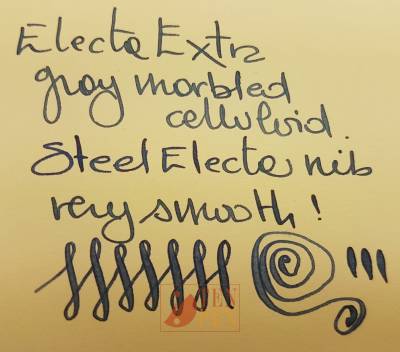 Electa Extra
gray marbled
celluloid.
Steel Electa nib
very smooth!